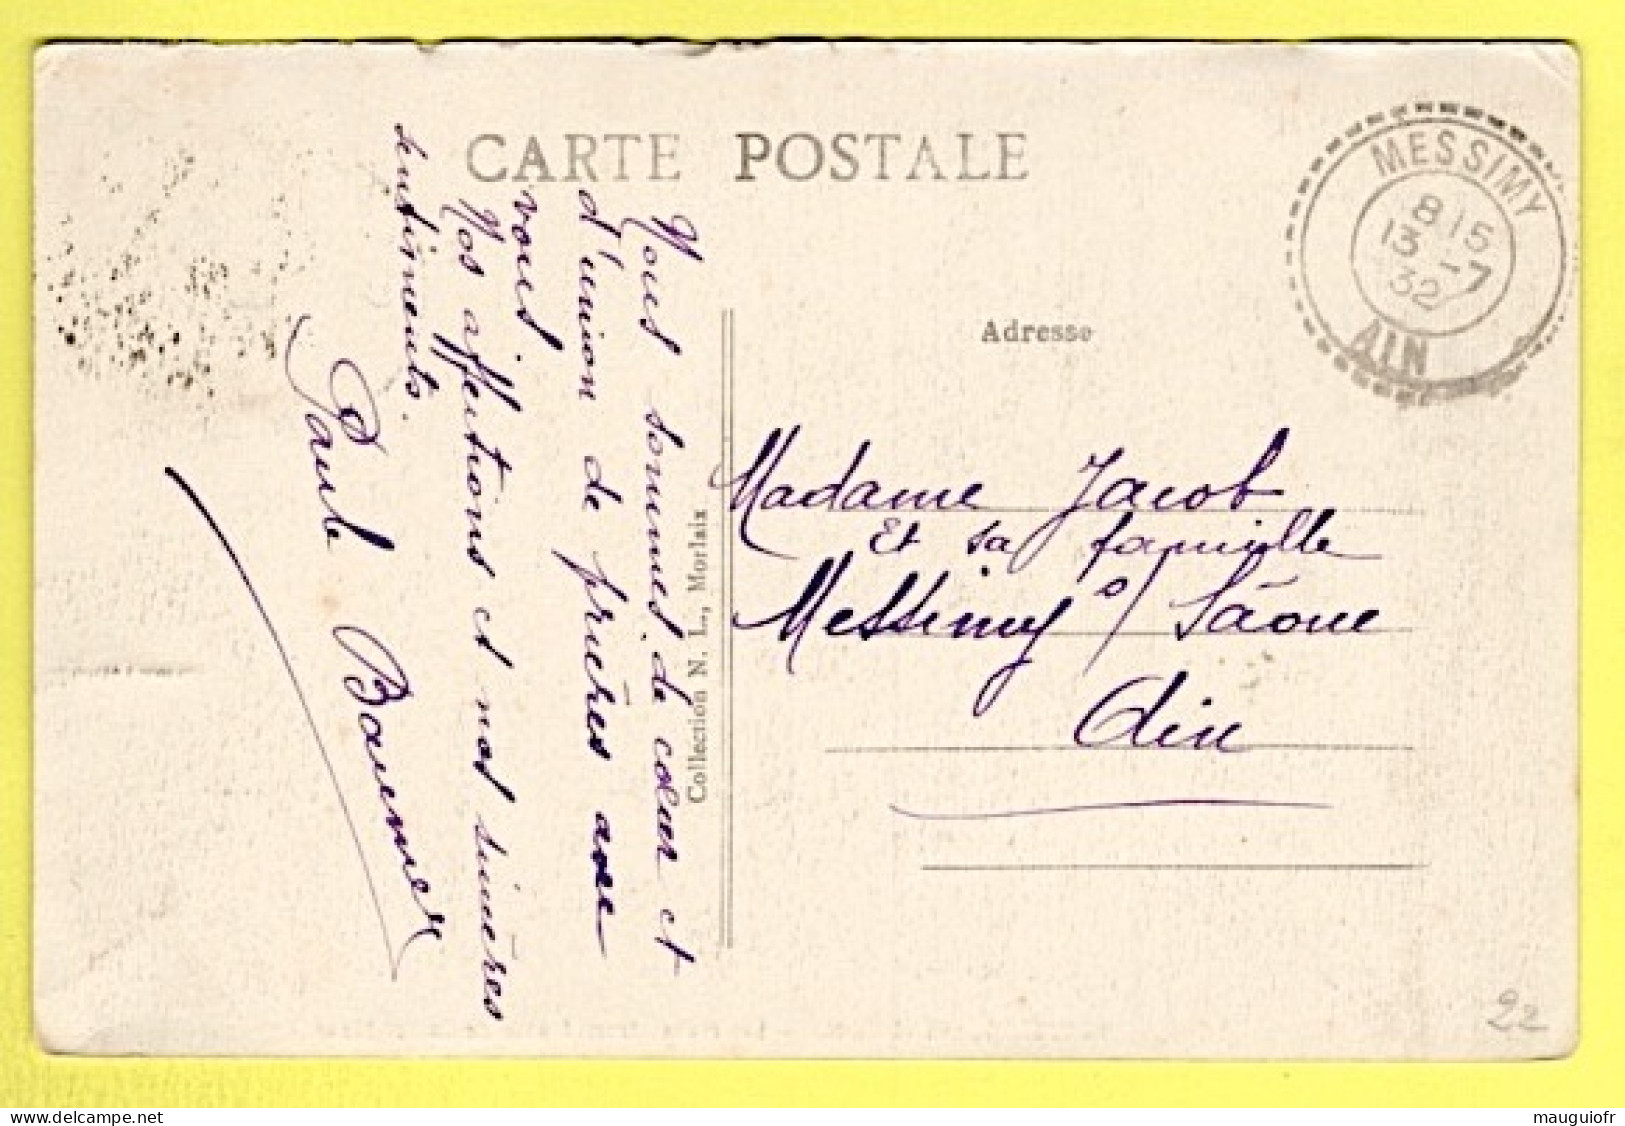 CARTE POSTALE
MESSIMY
8 15
13 -7
32
AIN
Adresse
Nous sommes de coeur et
d'union de prières avec
vous.
Nos affections et nos sincères
sentiments.
Paule
Collection N. L., Morlaix
Madame Jacob
et sa famille
Messimy s/ Saône
Ain
22
delcampe.net
mauguiofr